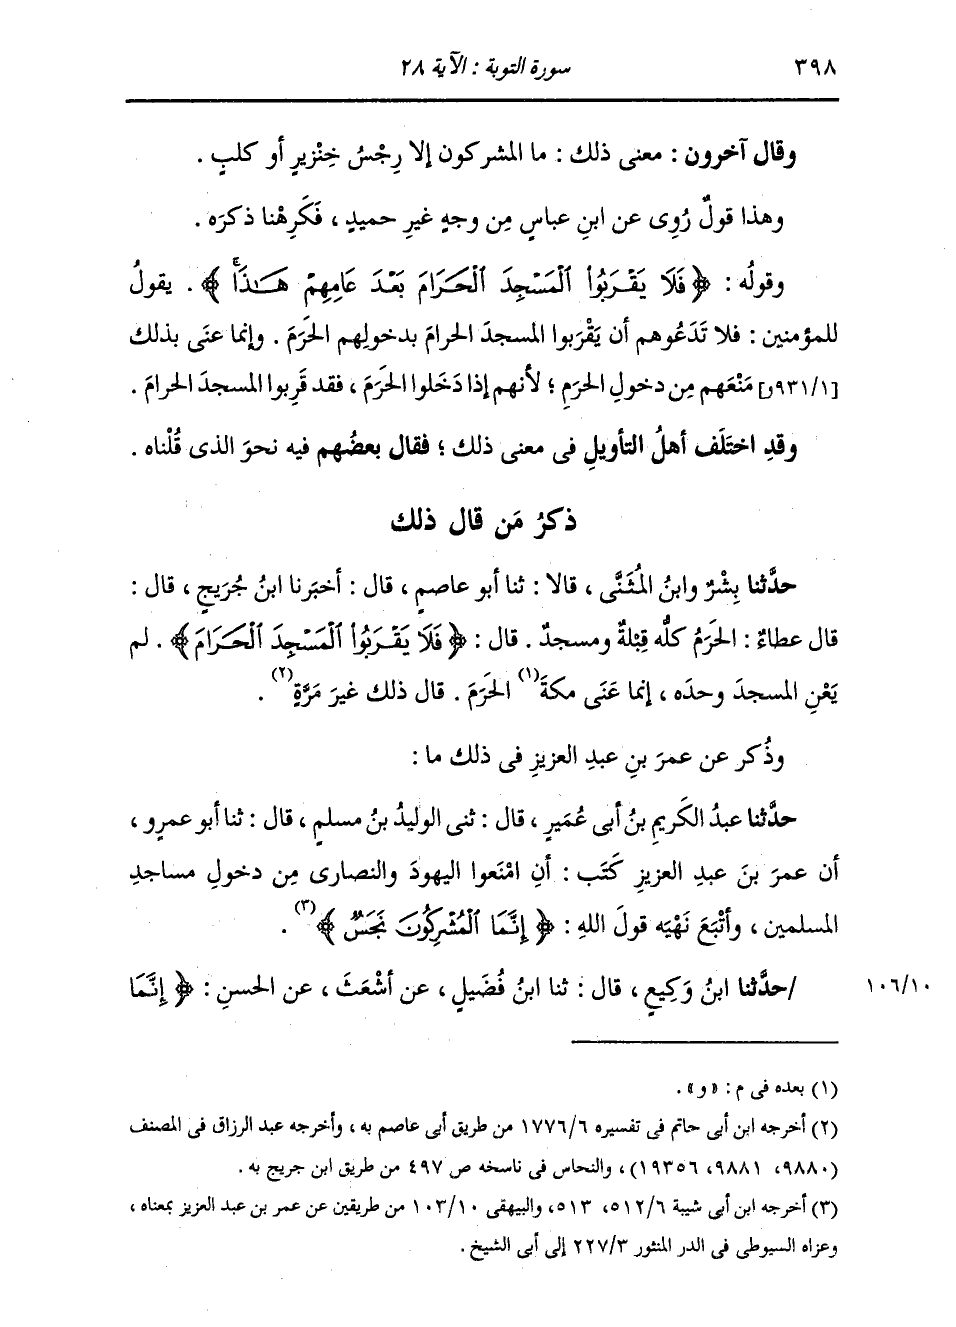 ٣٩٨ سورة التوبة : الآية ٢٨
وقال آخرون : معنى ذلك : ما المشركون إلا رِجْسُ خِنْزيرٍ أو كلبٍ .
وهذا قولٌ رُوِى عن ابنِ عباسٍ مِن وجهٍ غيرِ حميدٍ ، فكَرِهْنا ذكرَه .
وقولُه : ﴿ فَلَا يَقْرَبُوا۟ ٱلْمَسْجِدَ ٱلْحَرَامَ بَعْدَ عَامِهِمْ هَـٰذَاۚ ﴾ . يقولُ
للمؤمنين : فلا تَدَعُوهم أن يَقْرَبوا المسجدَ الحرامَ بدخولِهم الحَرَمَ . وإنما عنَى بذلك
[٩٣١/١و] مَنْعَهم مِن دخولِ الحرَمِ ؛ لأنهم إذا دَخَلوا الحَرَمَ ، فقد قَرِبوا المسجدَ الحرامَ .
وقدِ اختَلَف أهلُ التأويلِ فى معنى ذلك ؛ فقال بعضُهم فيه نحوَ الذى قُلْناه .
ذكرُ مَن قال ذلك
حدَّثنا بِشْرٌ وابنُ المُثَنَّى ، قالا : ثنا أبو عاصمٍ ، قال : أخبَرنا ابنُ جُرَيجٍ ، قال :
قال عطاءٌ : الحَرَمُ كلُّه قِبْلةٌ ومسجدٌ . قال : ﴿ فَلَا يَقْرَبُوا۟ ٱلْمَسْجِدَ ٱلْحَرَامَ ﴾ . لم
يَعْنِ المسجدَ وحدَه ، إنما عَنَى مكةَ(١) الحَرَمَ . قال ذلك غيرَ مَرَّةٍ(٢) .
وذُكر عن عمرَ بنِ عبدِ العزيزِ فى ذلك ما :
حدَّثنا عبدُ الكَريمِ بنُ أبى عُمَيرٍ ، قال : ثنى الوليدُ بنُ مسلمٍ ، قال : ثنا أبو عمرٍو ،
أن عمرَ بنَ عبدِ العزيزِ كَتَب : أنِ امْنَعوا اليهودَ والنصارى مِن دخولِ مساجدِ
المسلمين ، وأَتْبَعَ نَهْيَه قولَ اللهِ : ﴿ إِنَّمَا ٱلْمُشْرِكُونَ نَجَسٌ ﴾(٣) .
١٠٦/١٠ /حدَّثنا ابنُ وَكِيعٍ ، قال : ثنا ابنُ فُضَيلٍ ، عن أَشْعَثَ ، عن الحسنِ : ﴿ إِنَّمَا
(١) بعده فى م : « و » .
(٢) أخرجه ابن أبى حاتم فى تفسيره ١٧٧٦/٦ من طريق أبى عاصم به ، وأخرجه عبد الرزاق فى المصنف
(٩٨٨٠، ٩٨٨١، ١٩٣٥٦) ، والنحاس فى ناسخه ص ٤٩٧ من طريق ابن جريج به .
(٣) أخرجه ابن أبى شيبة ٥١٢/٦، ٥١٣، والبيهقى ١٠٣/١٠ من طريقين عن عمر بن عبد العزيز بمعناه ،
وعزاه السيوطى فى الدر المنثور ٢٢٧/٣ إلى أبى الشيخ .